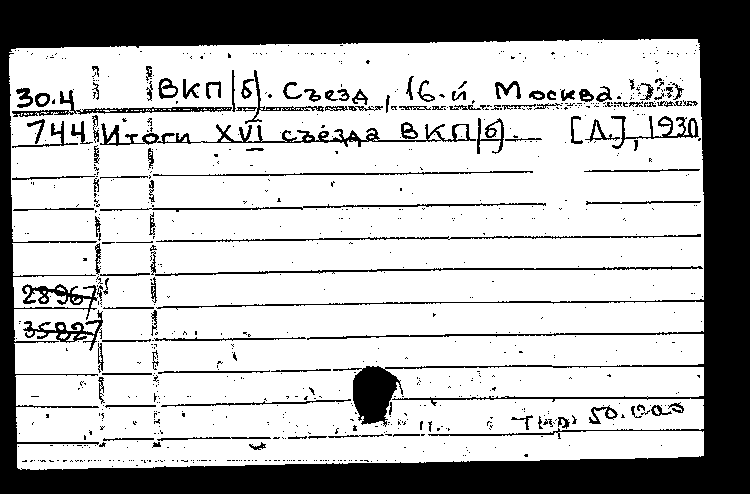 30.4 ВКП/б/. Съезд, 16-й, Москва. 1930
744 Итоги XVI съезда ВКП/б/. [Л.], 1930
28967
35827
Тир 50.000